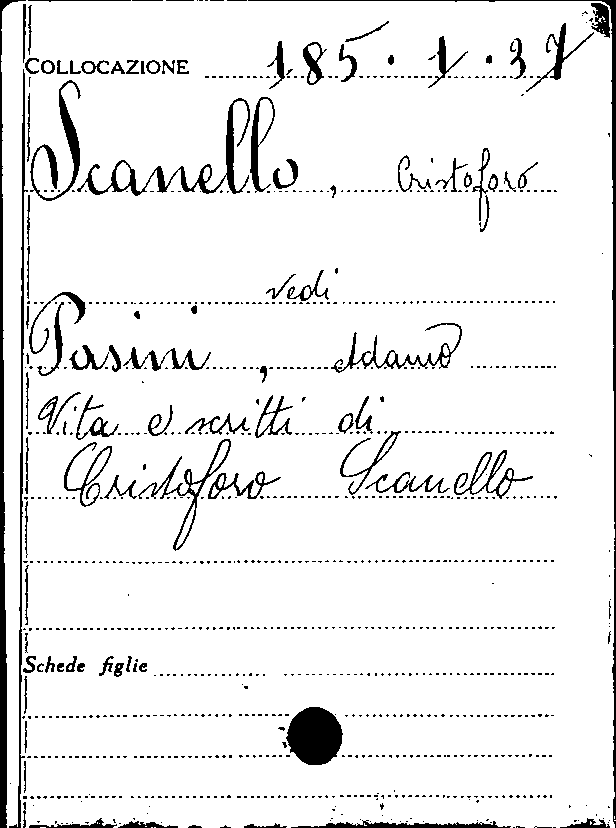 COLLOCAZIONE 185.1.37
Scanello, Cristoforo
vedi
Pasini, Adamo
Vita e scritti di
Cristoforo Scanello
Schede figlie